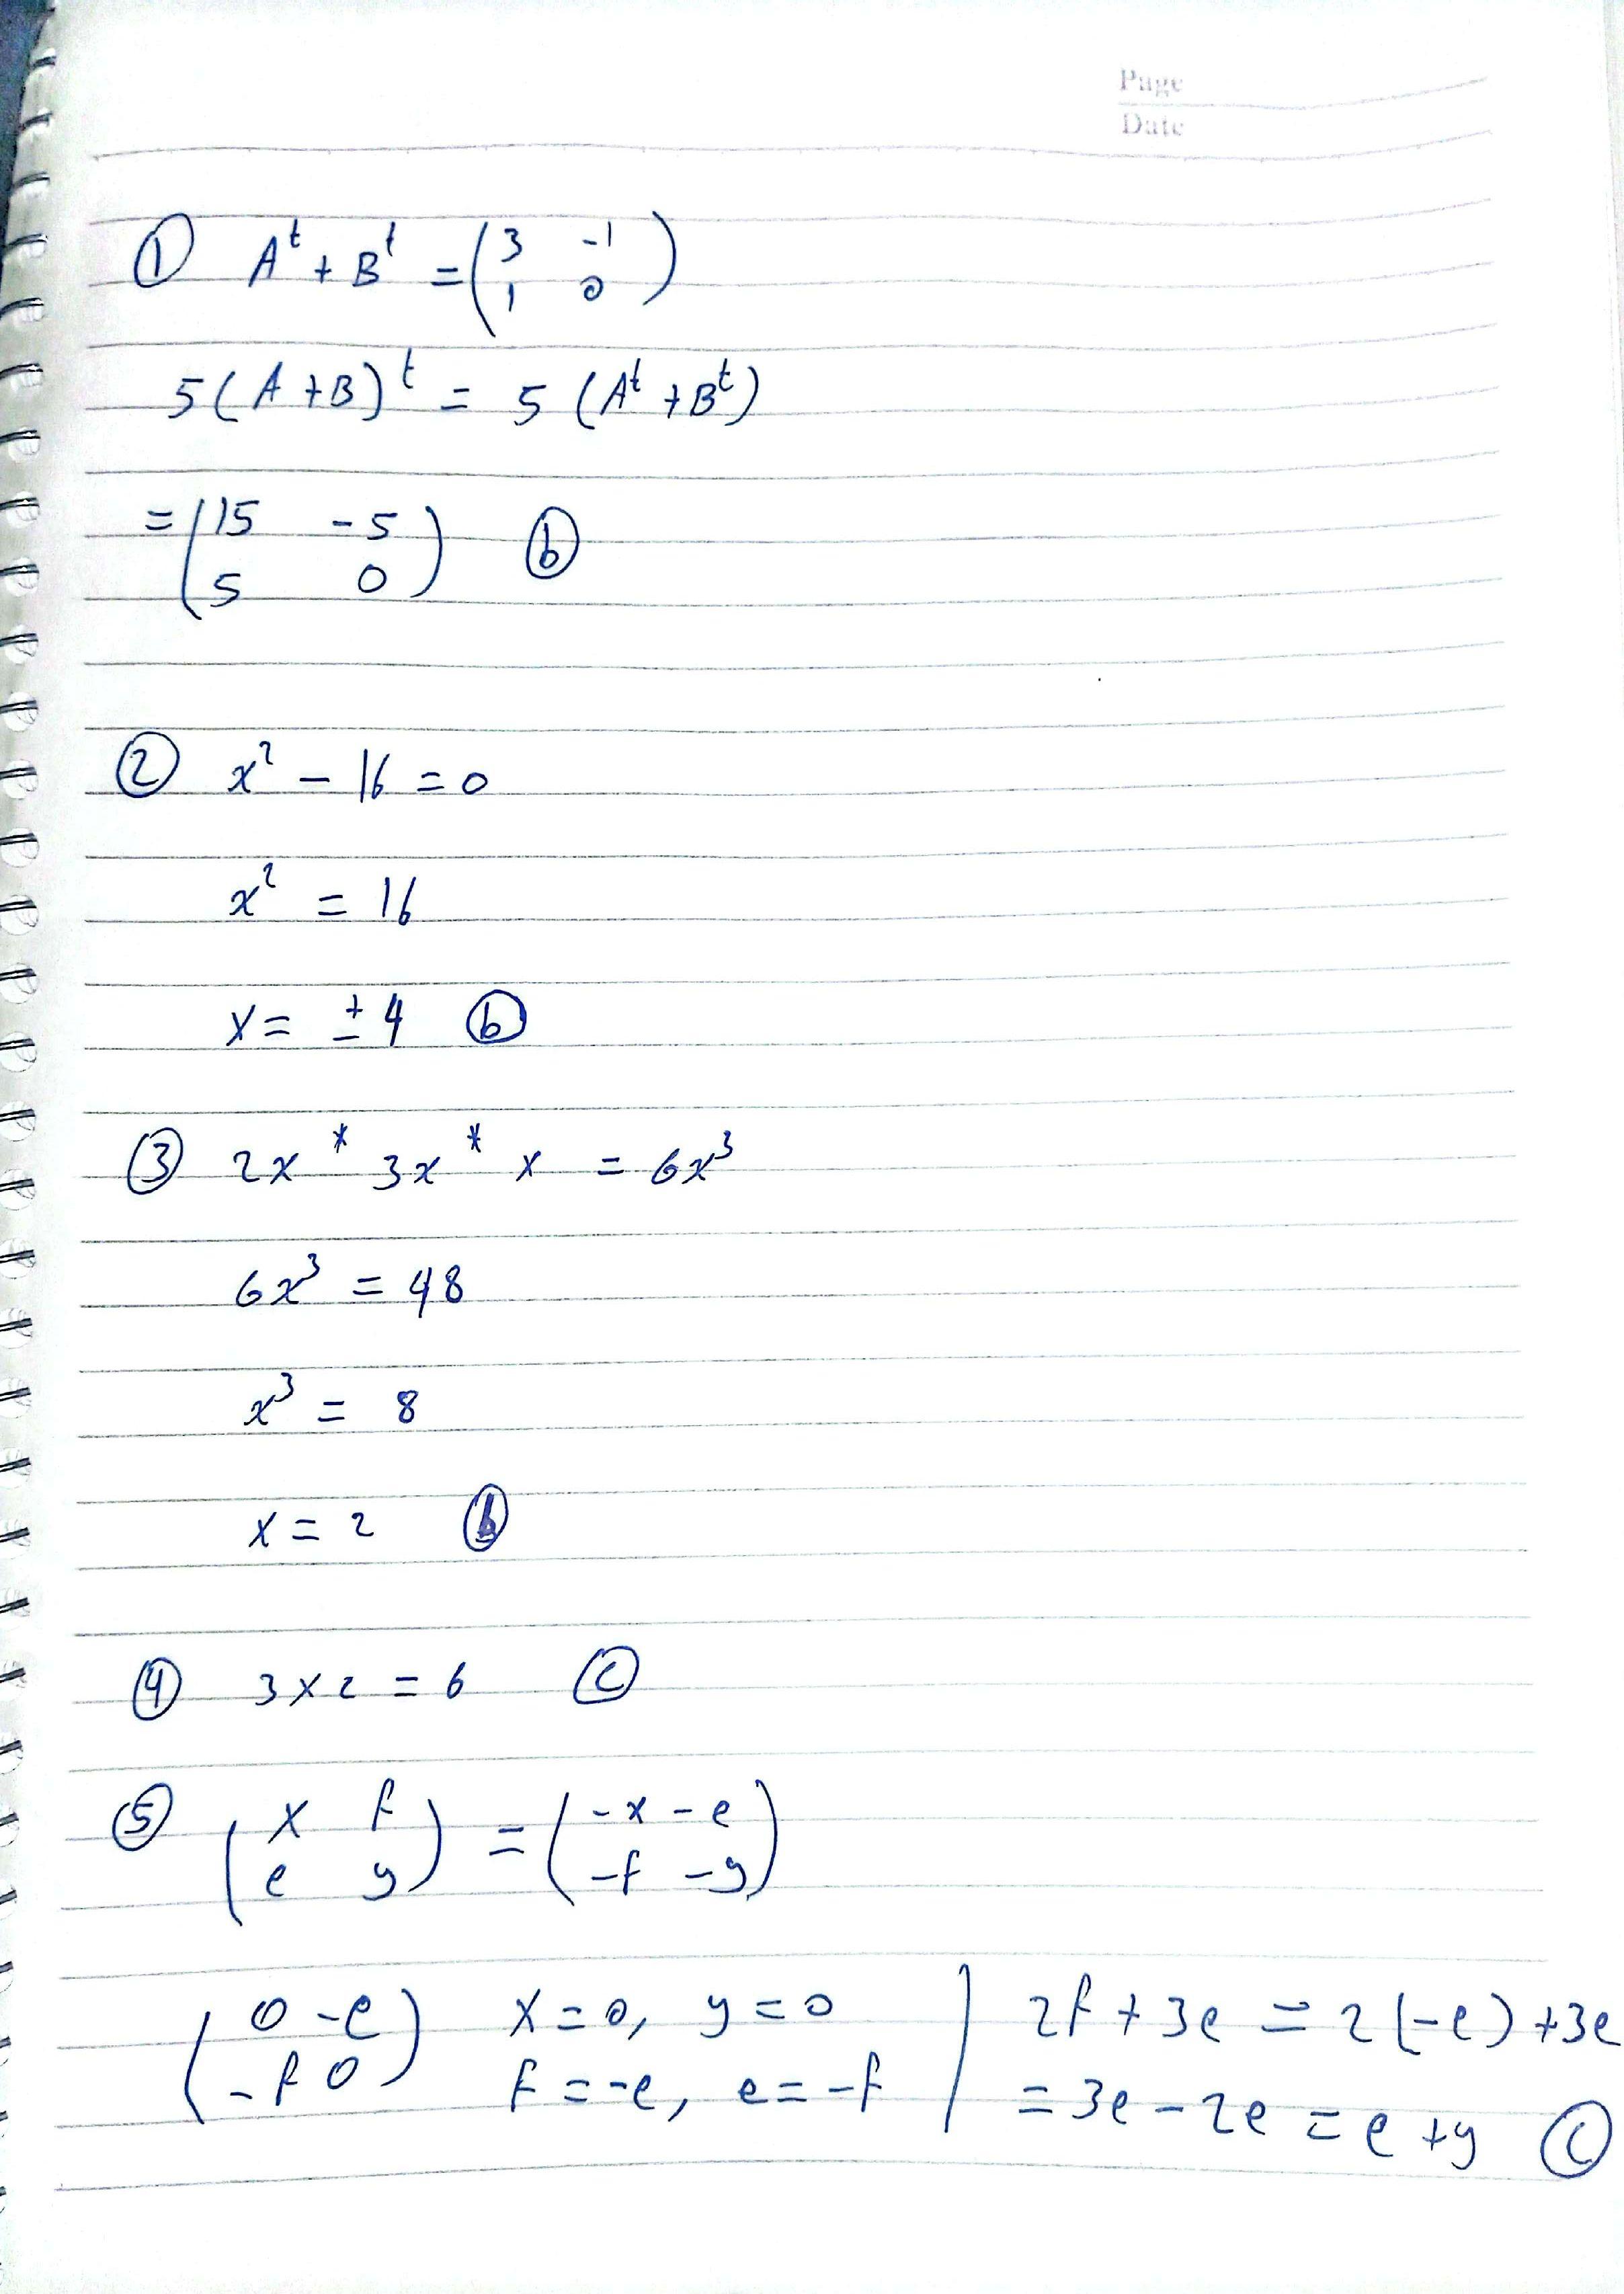 Page
Date
① Aᵗ + Bᵗ = (3 -1
1 0)
5(A + B)ᵗ = 5 (Aᵗ + Bᵗ)
= (15 -5
5 0) ⓑ
② x² - 16 = 0
x² = 16
x = ± 4 ⓑ
③ 2x * 3x * x = 6x³
6x³ = 48
x³ = 8
x = 2 ⓑ
④ 3 × 2 = 6 ⓒ
⑤ (x f
e y) = (-x -e
-f -y)
(0 -e
-f 0)
x = 0, y = 0
f = -e, e = -f
2f + 3e = 2(-e) + 3e
= 3e - 2e = e + y ⓒ